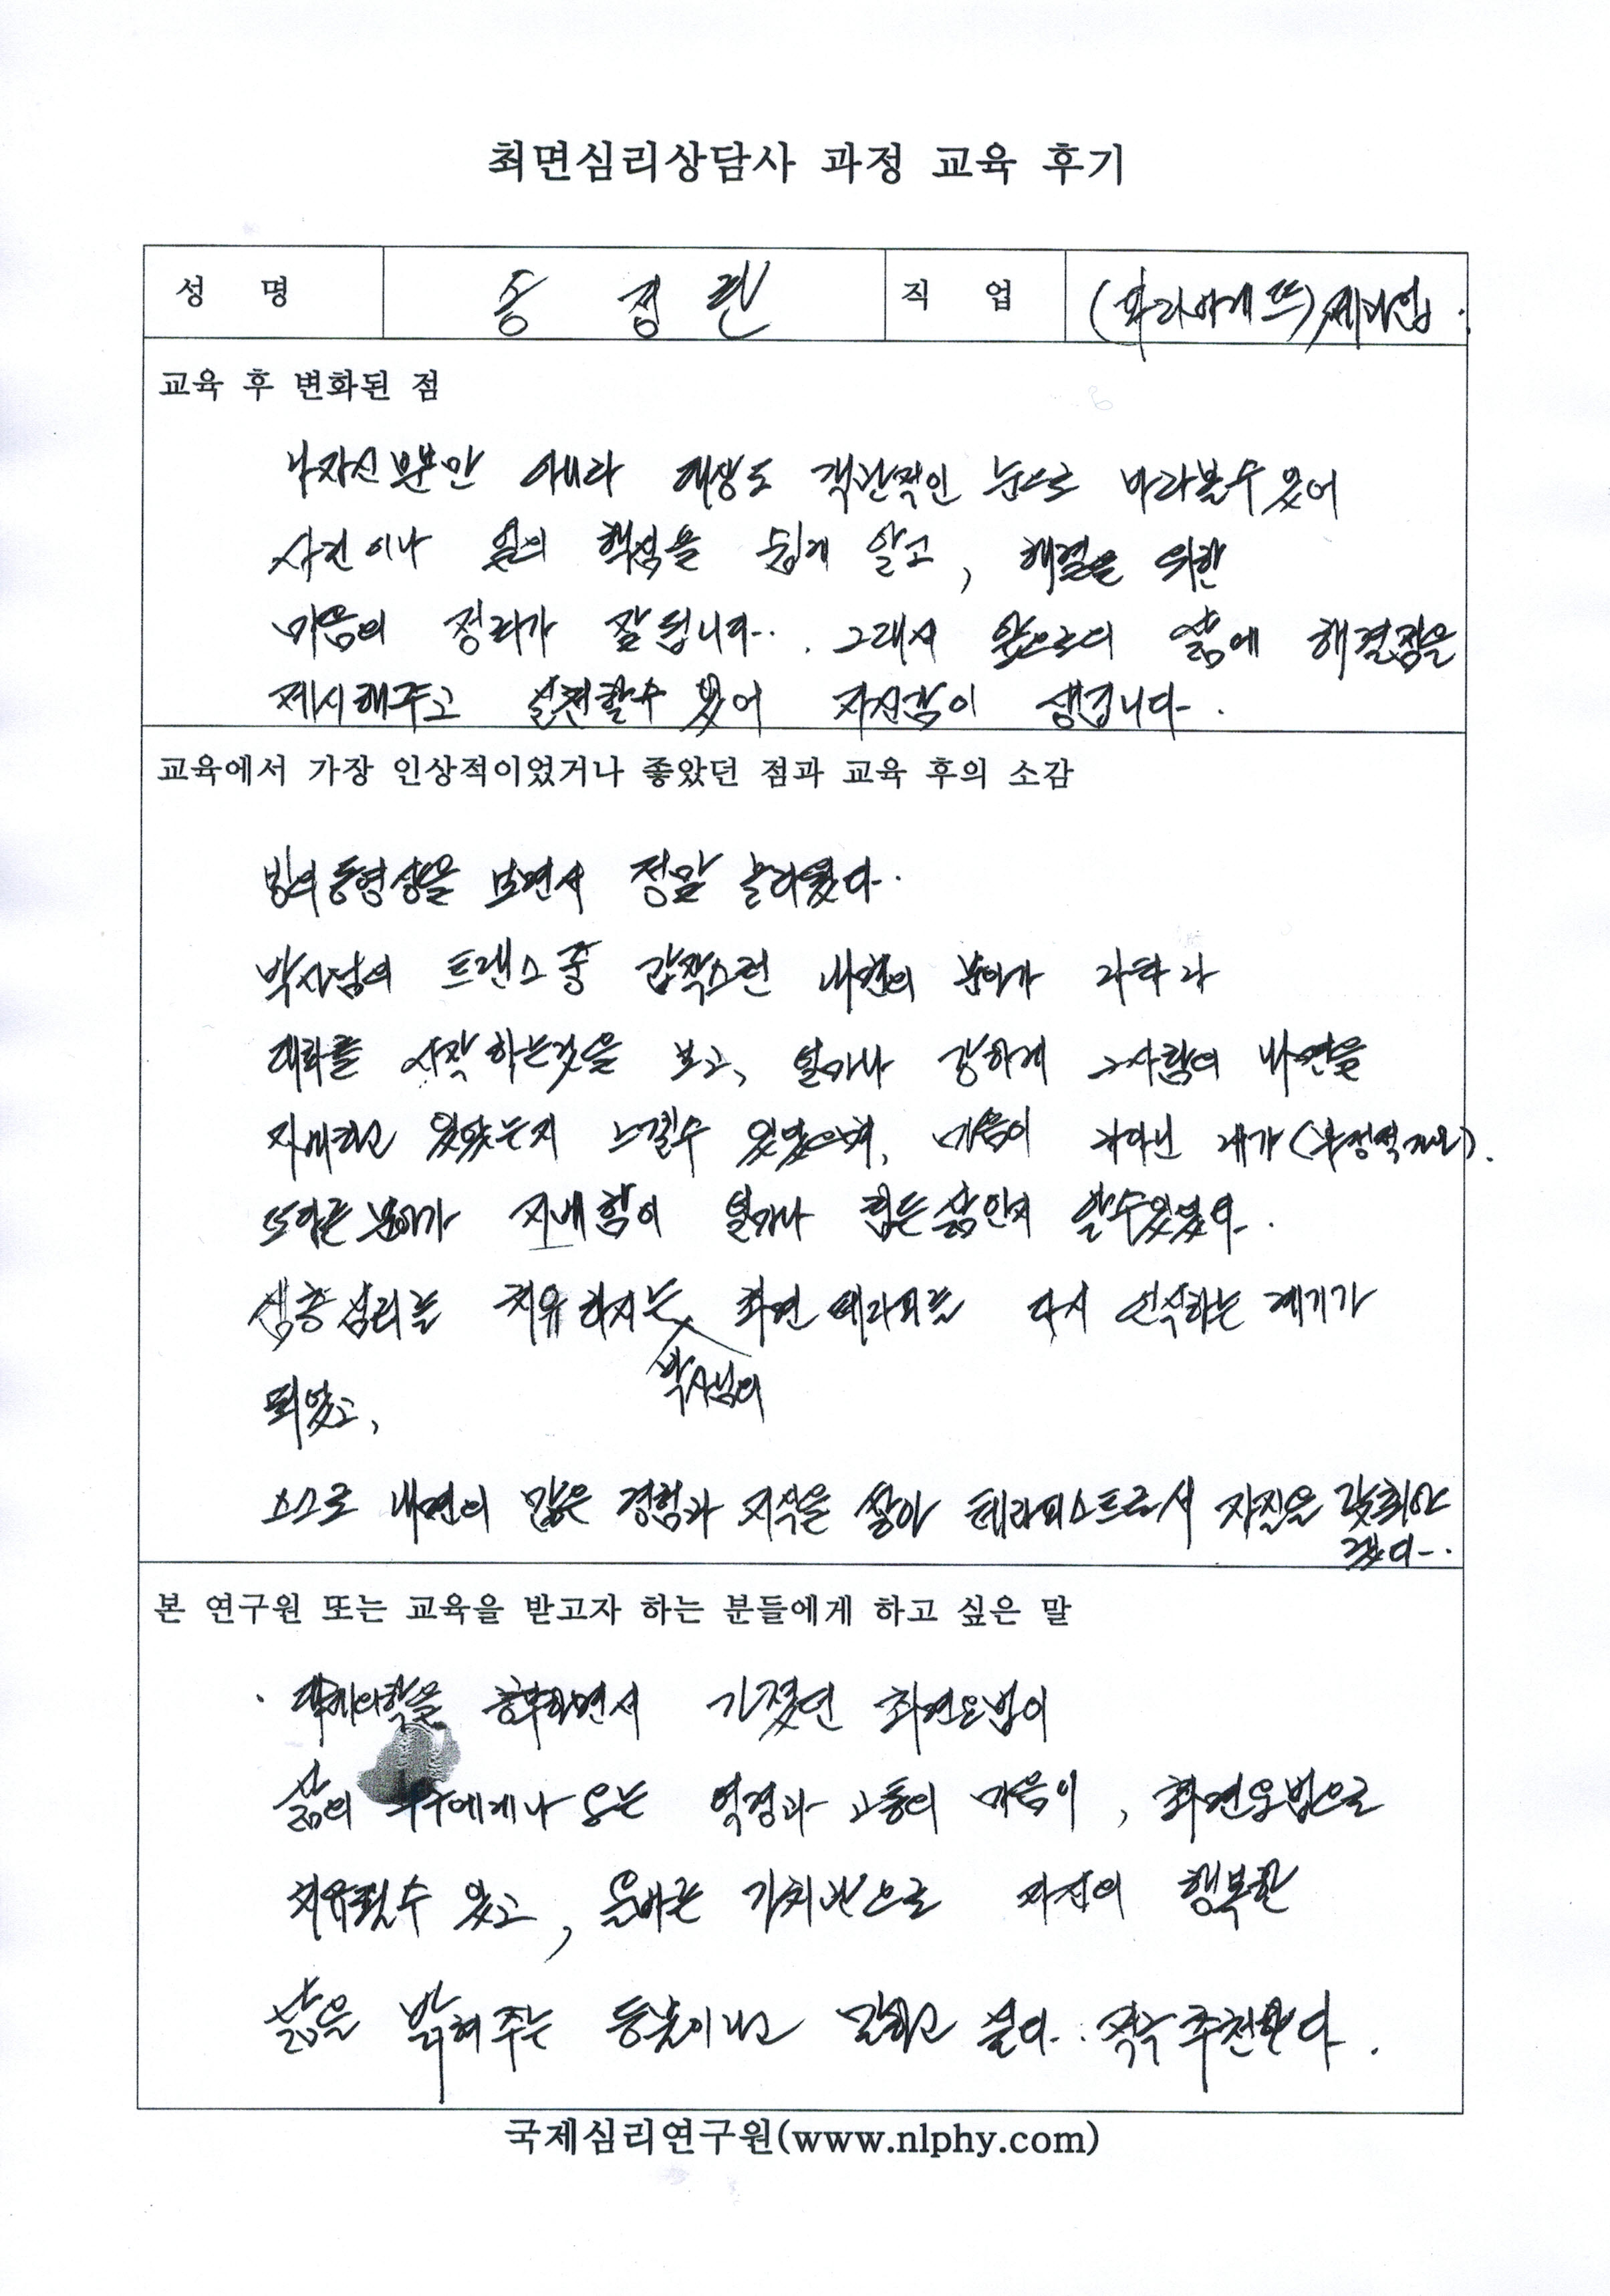 최면심리상담사 과정 교육 후기
성 명 송 정 린 직 업 (파라바게뜨) 제과업.
교육 후 변화된 점
나자신뿐만 아니라 대상도 객관적인 눈으로 바라볼수 있어
사건이나 일의 핵심을 쉽게 알고, 해결을 위한
마음의 정리가 잘 됩니다.. 그래서 앞으로의 삶에 해결점을
제시해주고 실천할수 있어 자신감이 생깁니다.
교육에서 가장 인상적이었거나 좋았던 점과 교육 후의 소감
빙의동영상을 보면서 정말 놀라웠다.
박사님의 트랜스 중 갑작스런 내면의 분아가 나타나
대화를 시작하는것을 보고, 얼마나 강하게 그사람의 내면을
지배하고 있었는지 느낄수 있었으며, 마음이 나아닌 내가(부정적자아).
또다른 분아가 지배함이 얼마나 힘든삶인지 알수있었다.
심층심리를 치유하시는 최면테라피를 다시 인식하는 계기가
박사님의
되었고,
스스로 내면의 많은 경험과 지식을 쌓아 테라피스트로서 자질을 갖춰야
겠다.
본 연구원 또는 교육을 받고자 하는 분들에게 하고 싶은 말
· 공부하면서 가졌던 최면요법이
삶의 누구에게나 오는 역경과 고통의 마음이, 최면요법으로
치유될수 있고, 올바른 가치관으로 자신의 행복한
삶을 밝혀주는 등불이라고 말하고 싶다. 적극 추천한다.
국제심리연구원(www.nlphy.com)